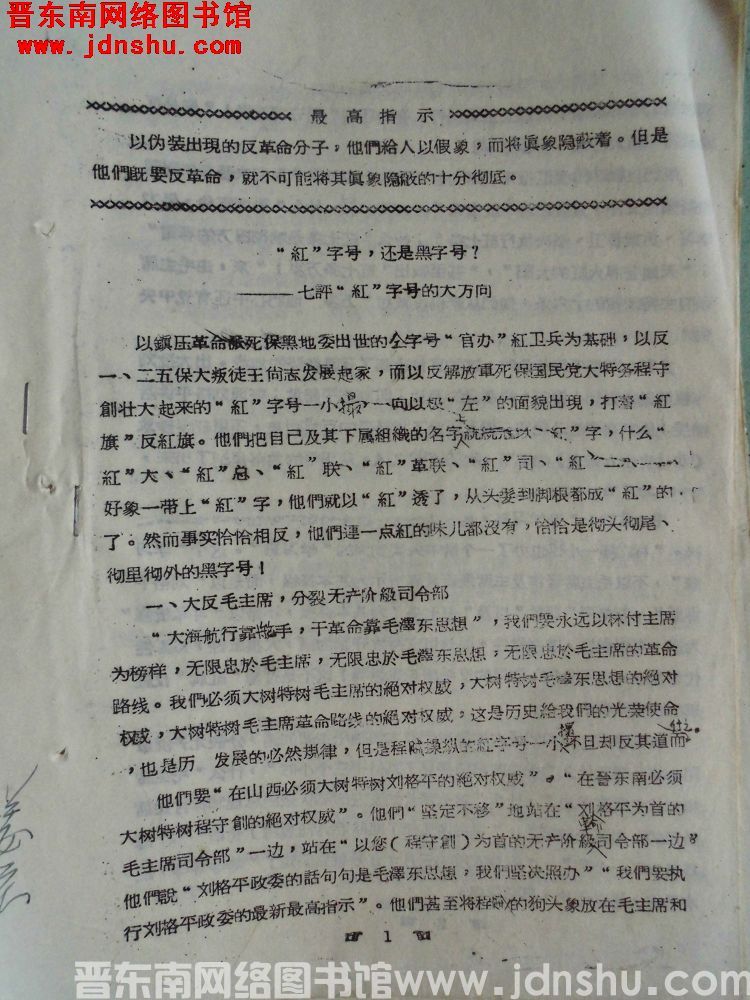 晋东南网络图书馆
www.jdnshu.com
最高指示
以伪装出現的反革命分子，他們給人以假象，而将眞象隐蔽着。但是
他們既要反革命，就不可能将其眞象隐蔽的十分彻底。
“紅”字号，还是黑字号？
——七評“紅”字号的大方向
以鎮压革命派死保黑地委出世的全字号“官办”紅卫兵为基础，以反
一、二五保大叛徒王尚志发展起家，而以反解放軍死保国民党大特务程守
創壮大起来的“紅”字号一小撮，一向以极“左”的面貌出現，打着“紅
旗”反紅旗。他們把自己及其下属組織的名字上 “紅”字，什么“
紅”大、“紅”总、“紅”联、“紅”革联、“紅”司、“紅”二八……
好象一带上“紅”字，他們就以“紅”透了，从头发到脚根都成“紅”的
了。然而事实恰恰相反，他們連一点紅的味儿都沒有，恰恰是彻头彻尾、
彻里彻外的黑字号！
一、大反毛主席，分裂无产阶級司令部
“大海航行靠舵手，干革命靠毛澤东思想”，我們要永远以林付主席
为榜样，无限忠於毛主席，无限忠於毛澤东思想，无限忠於毛主席的革命
路线。我們必须大树特树毛主席的絕对权威，大树特树毛澤东思想的絕对
权威，大树特树毛主席革命路线的絕对权威。这是历史給我們的光荣使命
，也是历 发展的必然規律，但是程 操纵的紅字号一小撮坏旦却反其道而行之。
他們要“在山西必须大树特树刘格平的絕对权威”。“在晉东南必须
大树特树程守創的絕对权威”。他們“坚定不移”地站在“刘格平为首的
毛主席司令部”一边，站在“以您（程守創）为首的无产阶級革命司令部一边”
他們說“刘格平政委的話句句是毛澤东思想，我們坚决照办”“我們要执
行刘格平政委的最新最高指示”。他們甚至将程 的狗头象放在毛主席和
1
晋东南网络图书馆www.jdnshu.com